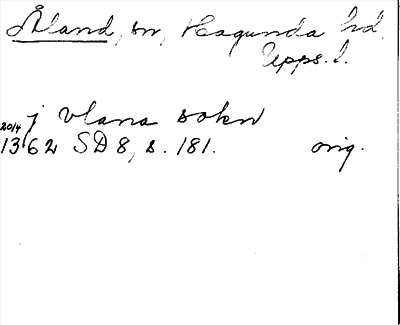 Åland, sn, Hagunda hd,
Upps. l.
j vlana sokn
20/4
1362 SD 8, s. 181. orig.